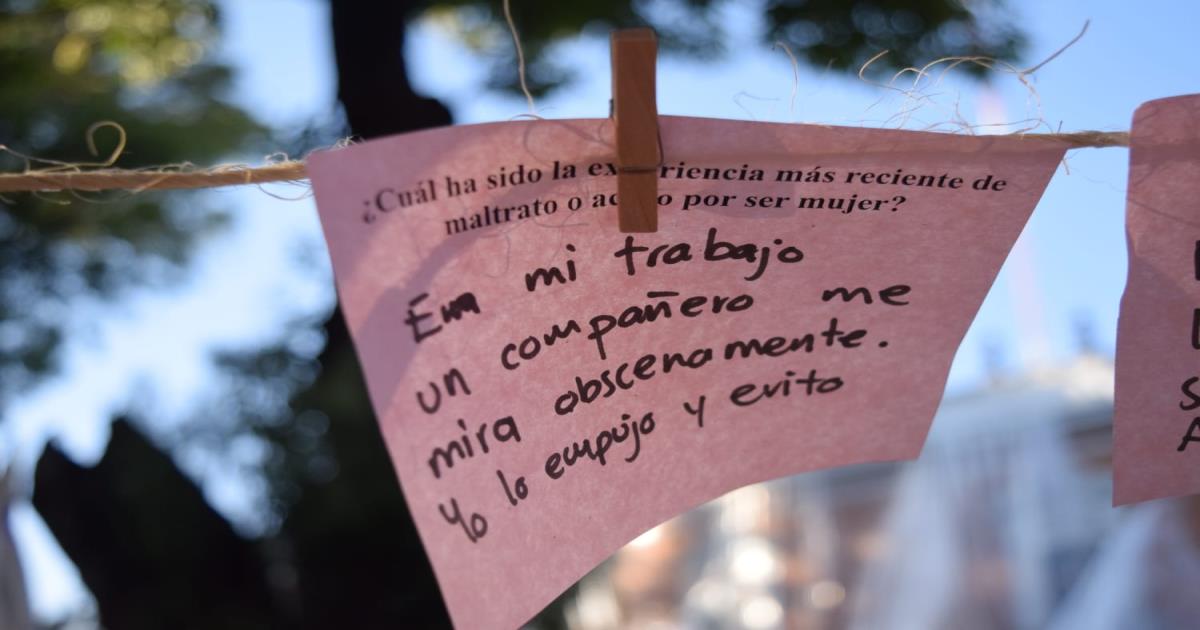 ¿Cuál ha sido la experiencia más reciente de
maltrato o ac o por ser mujer?
En mi trabajo
un compañero me
mira obscenamente.
Yo lo empujo y evito